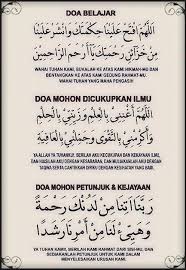 DOA BELAJAR
اَللّٰهُمَّ افْتَحْ عَلَيْنَا حِكْمَتَكَ وَانْشُرْ عَلَيْنَا
مِنْ خَزَائِنِ رَحْمَتِكَ يَا أَرْحَمَ الرَّاحِمِيْنَ
WAHAI TUHAN KAMI, BUKALAH KE ATAS KAMI HIKMAH-MU DAN
BENTANGKAN KE ATAS KAMI GEDUNG RAHMAT-MU
WAHAI TUHAN YANG MAHA PENGASIH
DOA MOHON DICUKUPKAN ILMU
اَللّٰهُمَّ أَغْنِنِيْ بِالْعِلْمِ وَزَيِّنِّيْ بِالْحِلْمِ
وَأَكْرِمْنِيْ بِالتَّقْوَى وَجَمِّلْنِيْ بِالْعَافِيَةِ
YA ALLAH YA TUHANKU, BERILAH AKU KECUKUPAN DAN KEKAYAAN ILMU,
DAN HIASILAH AKU DENGAN KESABARAN, DAN MULIAKANLAH AKU DENGAN
TAQWA SERTA CANTIKKAN DIRIKU DENGAN KESIHATAN YANG BAIK.
DOA MOHON PETUNJUK & KEJAYAAN
رَبَّنَا آتِنَا مِنْ لَدُنْكَ رَحْمَةً
وَهَيِّئْ لَنَا مِنْ أَمْرِنَا رَشَدًا
YA TUHAN KAMI, BERILAH KAMI RAHMAT DARI SISI-MU, DAN
SEDIAKANLAH PETUNJUK UNTUK KAMI DALAM
MENYELESAIKAN URUSAN KAMI.